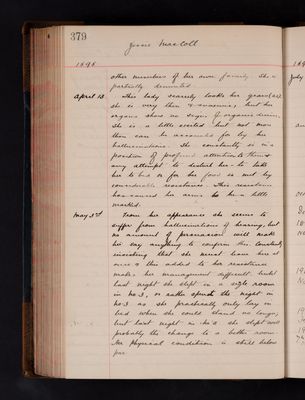 379
Jessie MacColl
1898
other members of her own family. She is
partially demented
April 13. This lady scarcely looks her years (42)
she is very thin & anaemic, but her
organs show no signs of organic disease.
She is a little excited but not more
than can be accounted for by her
hallucinations. She constantly is in a
position of profound attention to them &
any attempt to distract her or to take
her to bed or for her food is met by
considerable resistance. This resistance
has caused her arms to be a little
marked.
May 3rd From her appearance she seems to
suffer from hallucinations of hearing, but
no amount of persuasion will make
her say anything to confirm this. Constantly
insisting that she must leave here at
once & this added to her resistance
makes her management difficult. Until
last night she slept in a single room
in no 3, or rather spent the night in
no 3 as she practically only lay in
bed when she could stand no longer,
but last night in no 2 she slept well
probably the change to a better room.
Her physical condition is still below
par
189
July